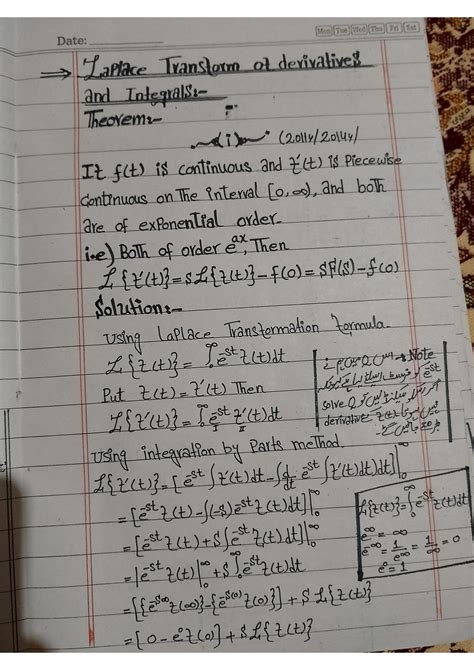 Mon Tue Wed Thu Fri Sat
Date:
⇒ Laplace Transform of derivatives
and Integrals:-
Theorem:-
(i) (2011y/2014y)
If f(t) is continuous and f'(t) is Piecewise
Continuous on The interval [0,∞), and both
are of exponential order.
i.e) Both of order e^ax, Then
L{f'(t)}=sL{f(t)}-f(0)=sF(s)-f(0)
Solution:-
Using Laplace Transformation Formula
L{f(t)} = ∫₀^∞ e^-st f(t)dt
Put f(t) = f'(t) Then
L{f'(t)} = ∫₀^∞ e^-st f'(t)dt
I II
Note
e^-st
solve
derivative f(t)
Using integration by Parts method
L{f'(t)}=[e^-st∫f'(t)dt-∫(d/dt e^-st∫f'(t)dt)dt]|₀^∞
=[e^-st f(t)-∫(-s)e^-st f(t)dt]|₀^∞
=[e^-st f(t)+s∫e^-st f(t)dt]|₀^∞
=|e^-st f(t)|₀^∞+s∫₀^∞ e^-st f(t)dt
=[{e^-s∞ f(∞)}-{e^-s(0) f(0)}]+sL{f(t)}
=[0-e^0 f(0)]+sL{f(t)}
L{f(t)}=∫₀^∞ e^-st f(t)dt
e^∞ = ∞
e^-∞ = 1/e^∞ = 1/∞ = 0
e^0 = 1